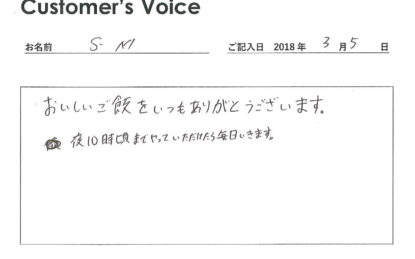 Customer's Voice
お名前 S M ご記入日 2018年 3月5日
おいしいご飯をいつもありがとうございます。
夜10時頃までやっていただけたら毎日いきます。